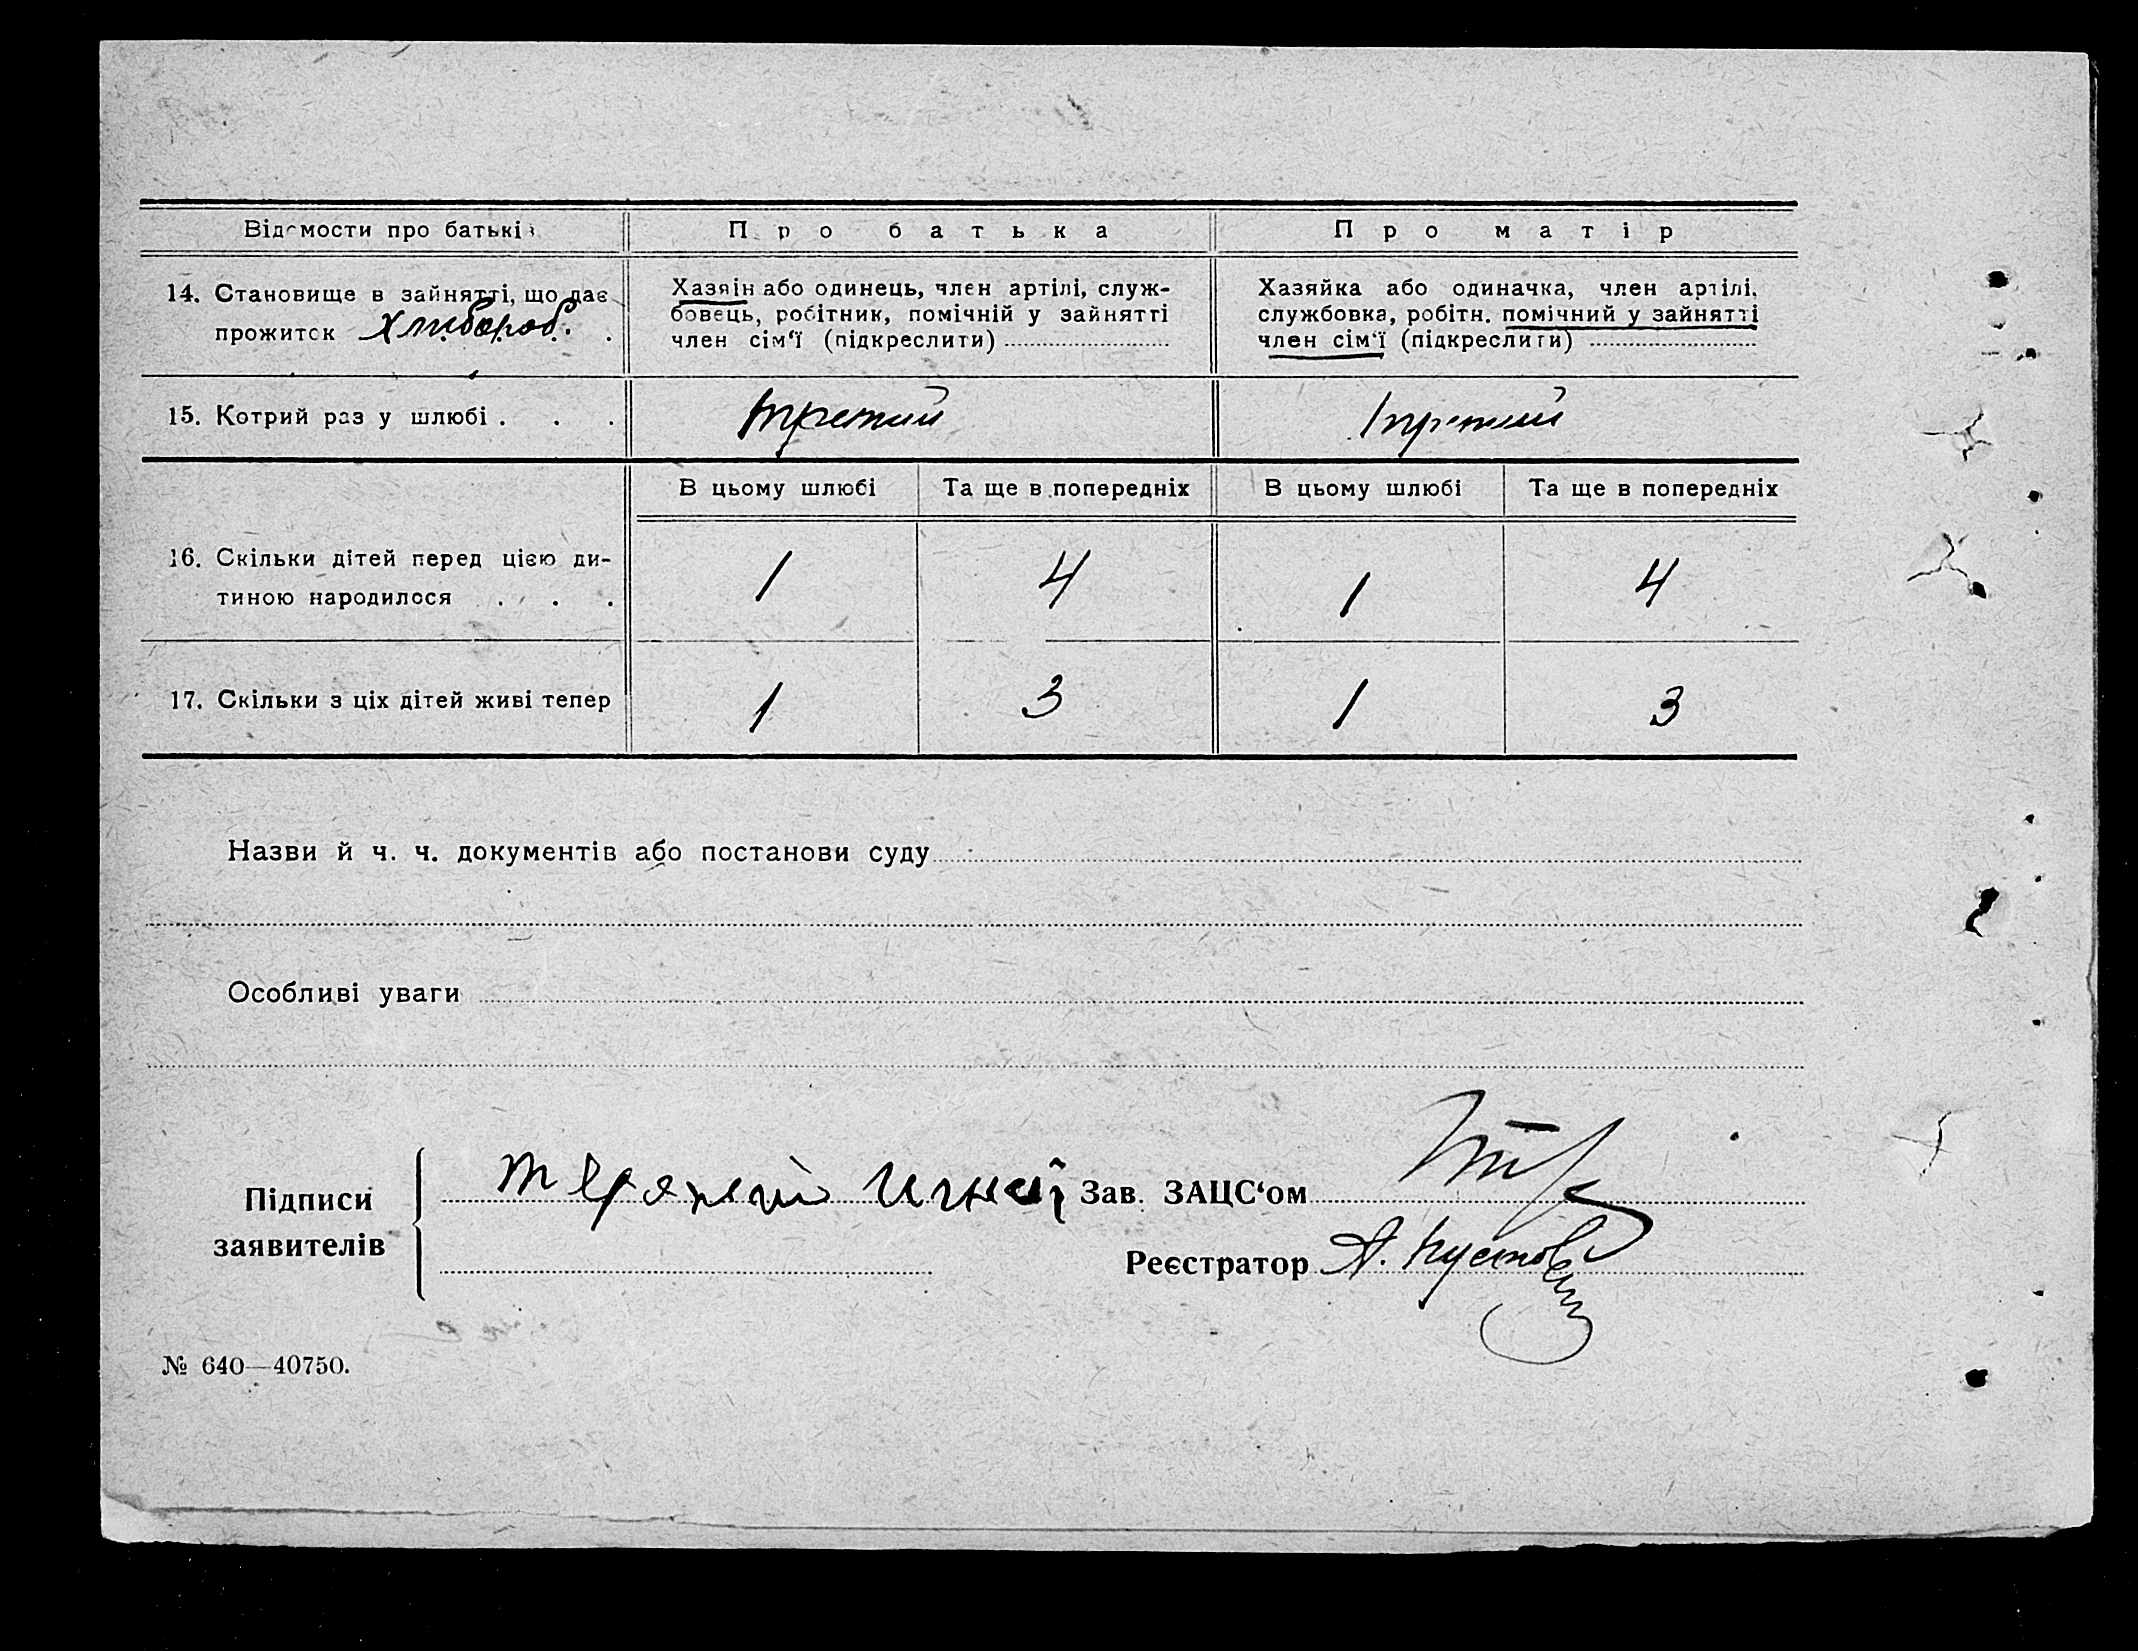 Відомости про батьків
Про батька
Про матір
14. Становище в зайнятті, що дає
прожиток Хлибороб.
Хазяїн або одинець, член артілі, служ-
бовець, робітник, помічній у зайнятті
член сім'ї (підкреслити)
Хазяйка або одиначка, член артілі,
службовка, робітн. помічний у зайнятті
член сім'ї (підкреслити)
15. Котрий раз у шлюбі . . .
третий
третий
В цьому шлюбі
Та ще в попередніх
В цьому шлюбі
Та ще в попередніх
16. Скільки дітей перед цією ди-
тиною народилося . . .
1
4
1
4
17. Скільки з ціх дітей живі тепер
1
3
1
3
Назви й ч. ч. документів або постанови суду
Особливі уваги
Підписи
заявителів
Зав. ЗАЦС'ом
Реєстратор А.
№ 640—40750.